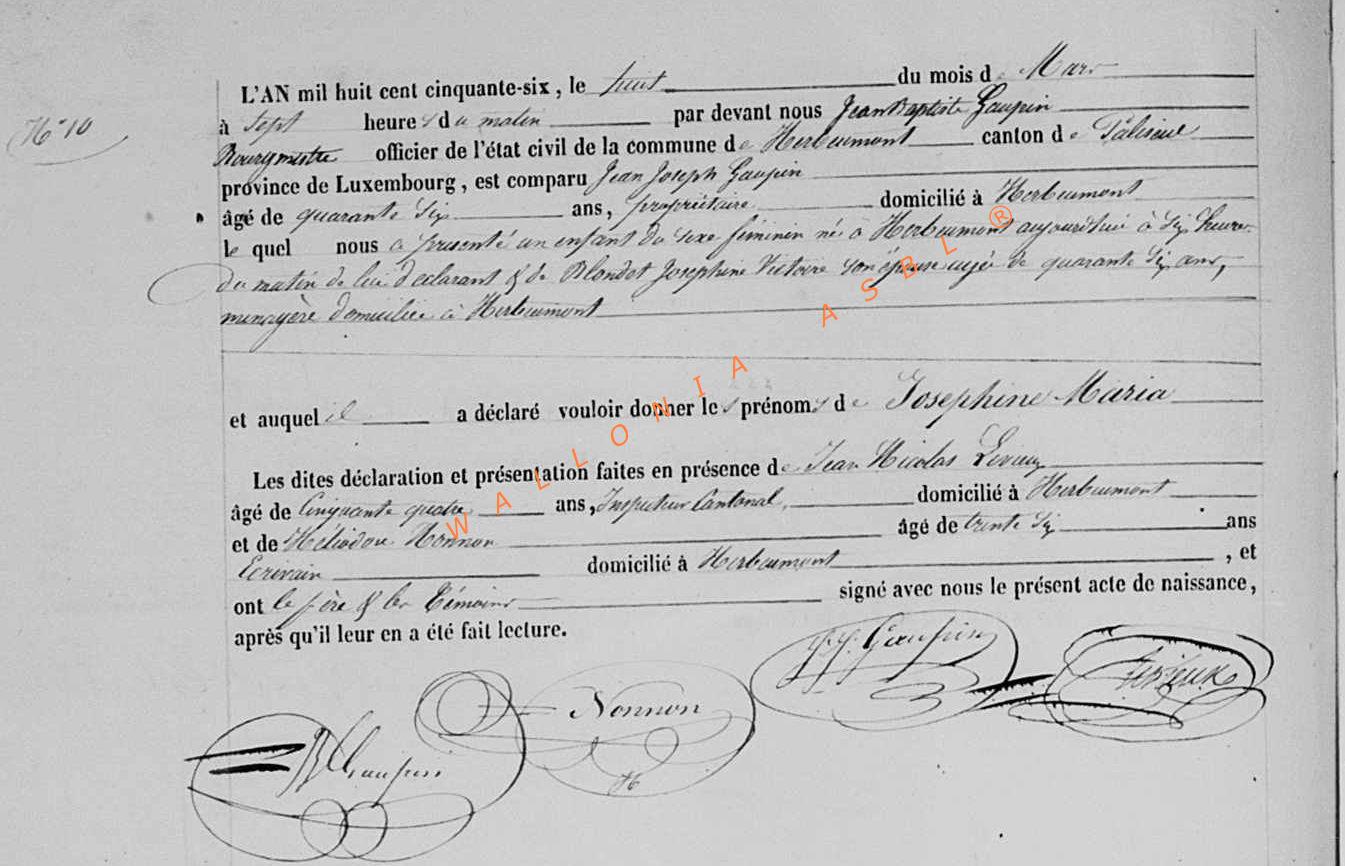 N° 10
L'AN mil huit cent cinquante-six, le huit du mois de Mars
à Sept heures du matin par devant nous Jean Baptiste Gaupin
Bourgmestre officier de l'état civil de la commune de Herbeumont canton de Paliseul
province de Luxembourg, est comparu Jean Joseph Gaupin
âgé de quarante Six ans, propriétaire domicilié à Herbeumont
le quel nous a presenté un enfant du sexe féminin né à Herbeumont aujourdhui à Six heure
du matin de lui Déclarant & de Blondet Josephine Victoire son épouse agée de quarante Six ans,
menagère domiciliée à Herbeumont
et auquel il a déclaré vouloir donner les prénoms de Josephine Maria
Les dites déclaration et présentation faites en présence de Jean Nicolas
âgé de Cinquante quatre ans, Inspecteur Cantonal, domicilié à Herbeumont
et de Héliodore Nonnon âgé de trente Six ans
Ecrivain domicilié à Herbeumont, et
ont le père & les Témoins signé avec nous le présent acte de naissance,
après qu'il leur en a été fait lecture.
J J Gaupin
Nonnon
JB Gaupin
WALLONIA ASBL ®